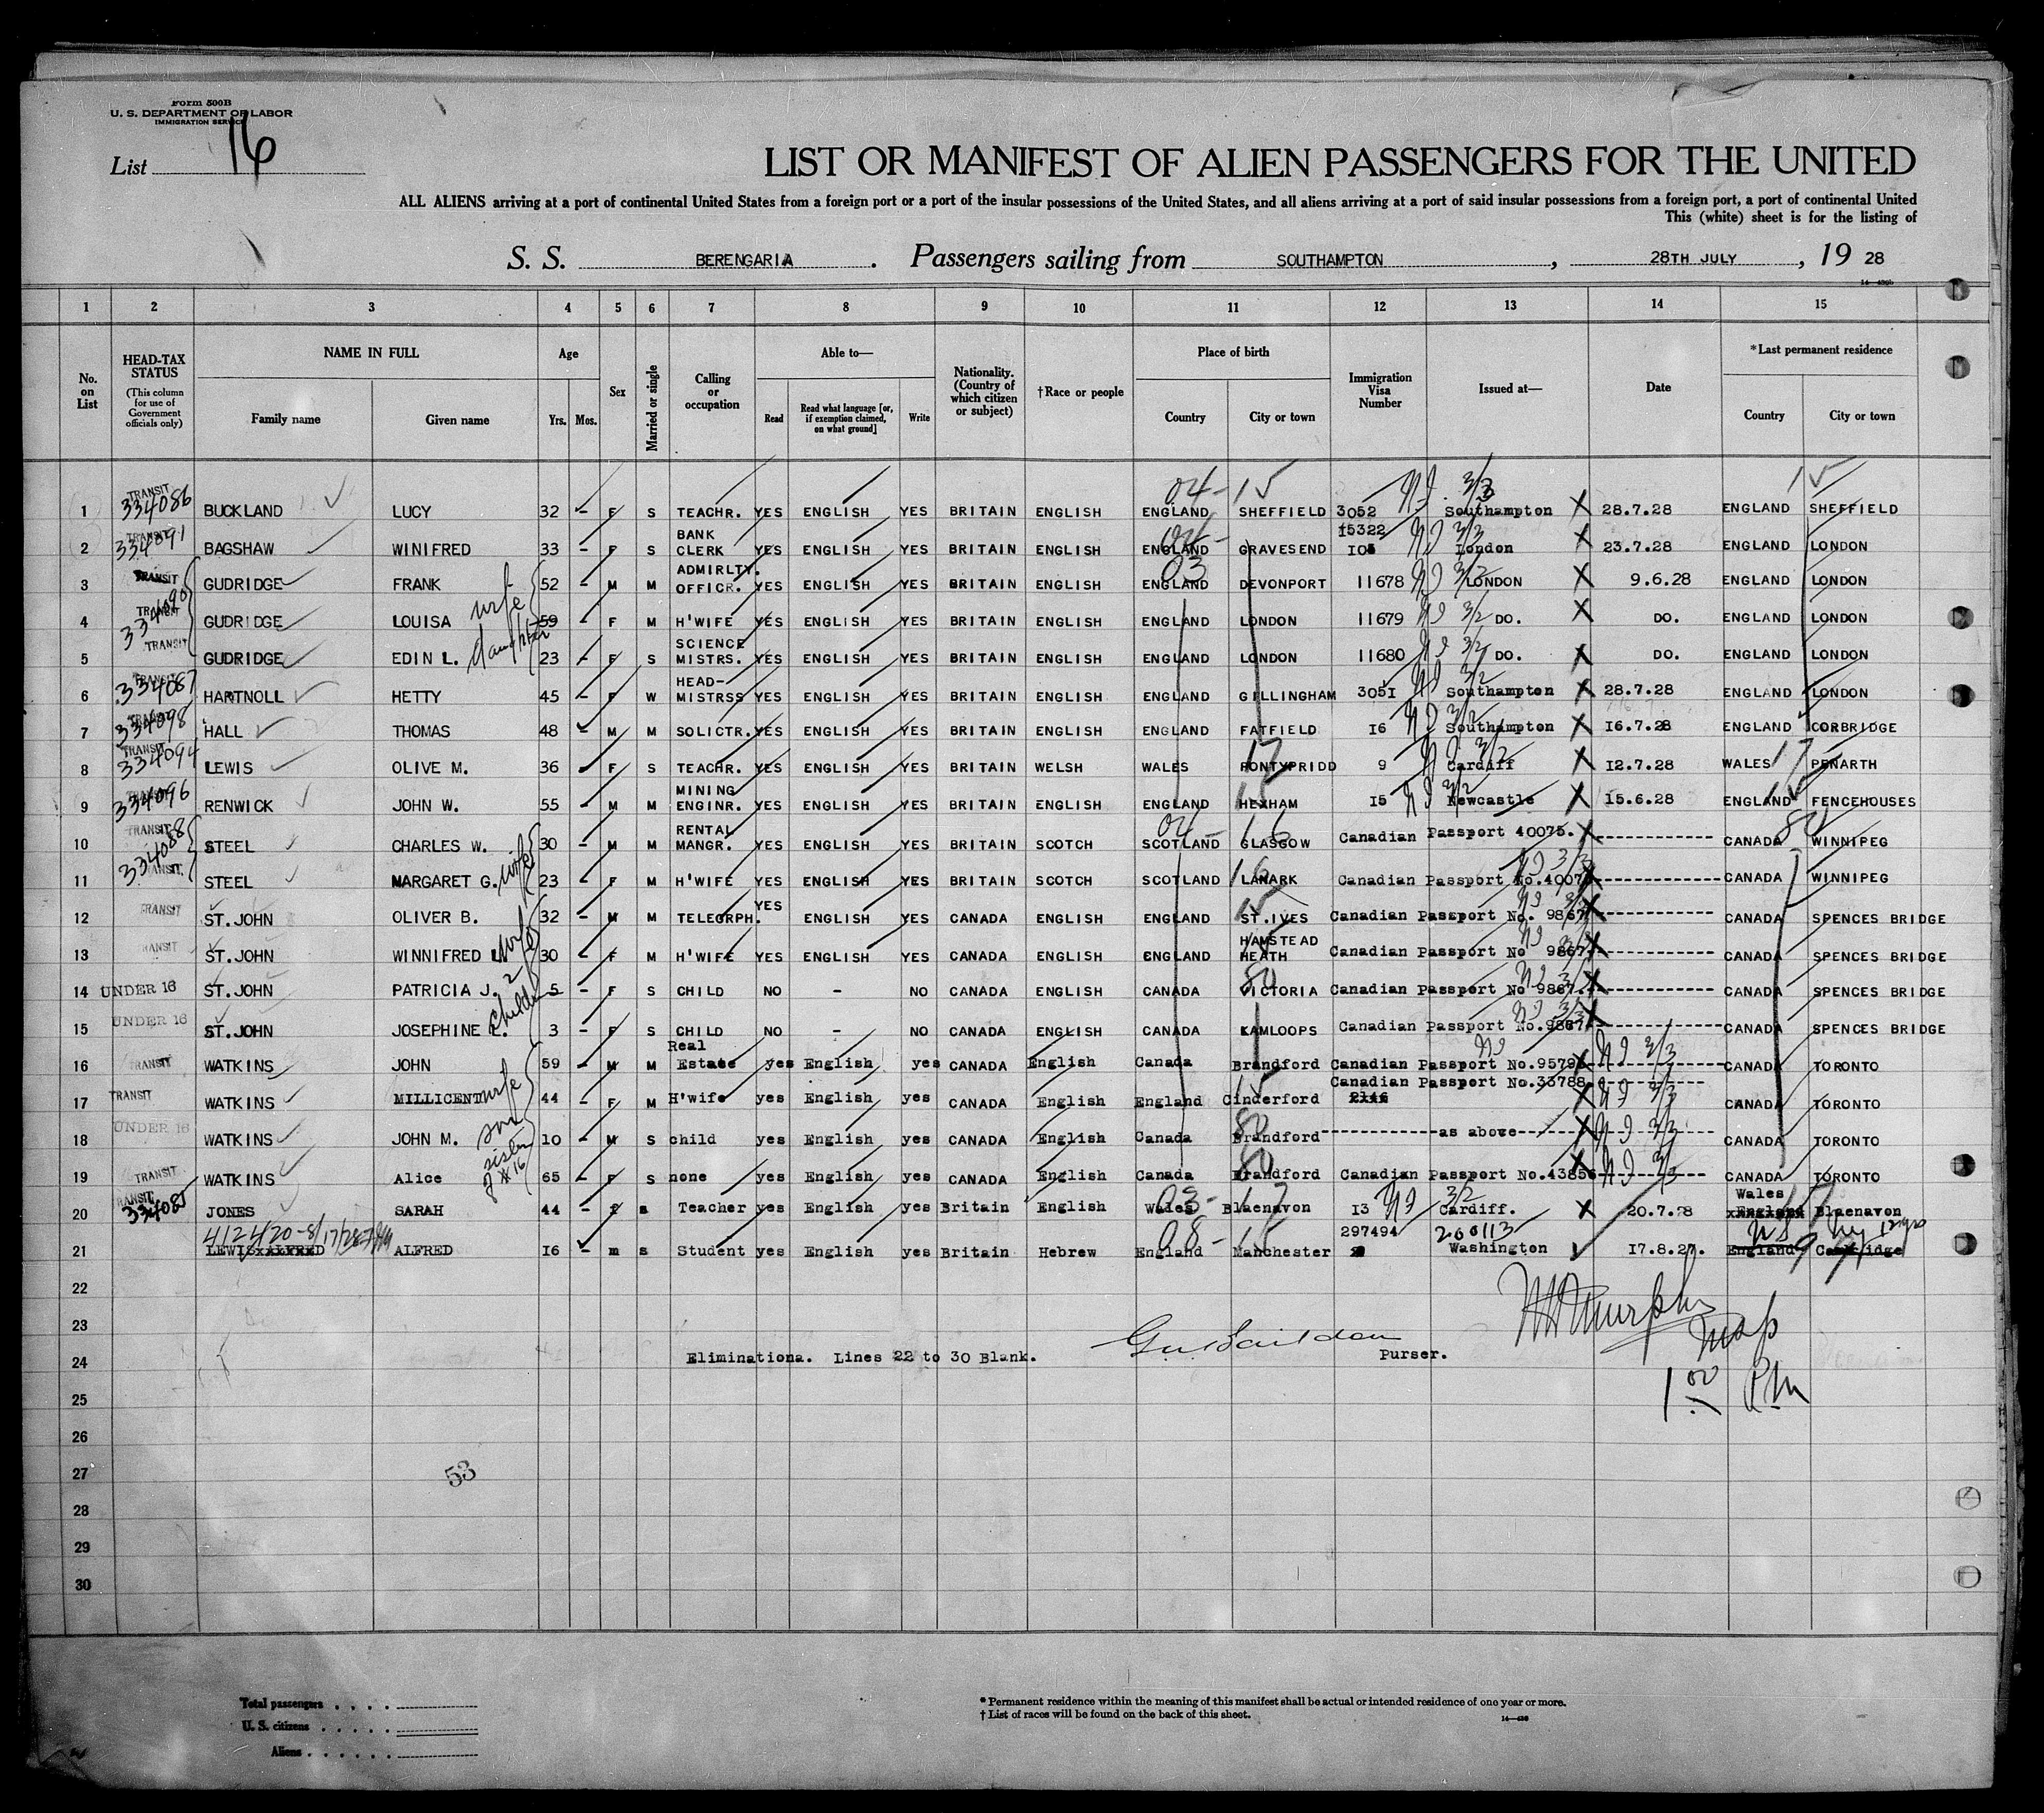 Form 500B
U. S. DEPARTMENT OF LABOR
IMMIGRATION SERVICE
List 16
LIST OR MANIFEST OF ALIEN PASSENGERS FOR THE UNITED
ALL ALIENS arriving at a port of continental United States from a foreign port or a port of the insular possessions of the United States, and all aliens arriving at a port of said insular possessions from a foreign port, a port of continental United
This (white) sheet is for the listing of
S. S. BERENGARIA. Passengers sailing from SOUTHAMPTON, 28TH JULY, 19 28
1 2 3 4 5 6 7 8 9 10 11 12 13 14 15
No. on List
HEAD-TAX STATUS (This column for use of Government officials only)
NAME IN FULL Family name Given name
Age Yrs. Mos.
Sex
Married or single
Calling or occupation
Able to— Read Read what language [or, if exemption claimed, on what ground] Write
Nationality. (Country of which citizen or subject)
†Race or people
Place of birth Country City or town
Immigration Visa Number
Issued at—
Date
*Last permanent residence Country City or town
04- 15 NI 3/3 15
1 TRANSIT 334086 BUCKLAND LUCY 32 - F S TEACHR. YES ENGLISH YES BRITAIN ENGLISH ENGLAND SHEFFIELD 3052 Southampton X 28.7.28 ENGLAND SHEFFIELD
2 TRANSIT 334091 BAGSHAW WINIFRED 33 - F S BANK CLERK YES ENGLISH YES BRITAIN ENGLISH ENGLAND GRAVESEND 15322 London X 23.7.28 ENGLAND LONDON
3 TRANSIT GUDRIDGE FRANK 52 - M M ADMIRLTY. OFFICR. YES ENGLISH YES BRITAIN ENGLISH ENGLAND DEVONPORT 11678 NI 3/2 LONDON X 9.6.28 ENGLAND LONDON
4 TRANSIT 334090 GUDRIDGE LOUISA wife 59 - F M H'WIFE YES ENGLISH YES BRITAIN ENGLISH ENGLAND LONDON 11679 NI 3/2 DO. X DO. ENGLAND LONDON
5 TRANSIT GUDRIDGE EDIN L. daughter 23 - F S SCIENCE MISTRS. YES ENGLISH YES BRITAIN ENGLISH ENGLAND LONDON 11680 NI 3/2 DO. X DO. ENGLAND LONDON
6 TRANSIT 334087 HARTNOLL HETTY 45 - F W HEAD-MISTRSS YES ENGLISH YES BRITAIN ENGLISH ENGLAND GILLINGHAM 3051 NI 3/2 Southampton X 28.7.28 ENGLAND LONDON
7 TRANSIT 334098 HALL THOMAS 48 - M M SOLICTR. YES ENGLISH YES BRITAIN ENGLISH ENGLAND FATFIELD 16 NI 3/2 Southampton X 16.7.28 ENGLAND CORBRIDGE
8 TRANSIT 334094 LEWIS OLIVE M. 36 - F S TEACHR. YES ENGLISH YES BRITAIN WELSH WALES PONTYPRIDD 9 NI 3/2 Cardiff X 12.7.28 WALES 17 PENARTH
9 TRANSIT 334096 RENWICK JOHN W. 55 - M M MINING ENGINR. YES ENGLISH YES BRITAIN ENGLISH ENGLAND HEXHAM 15 NI 3/2 Newcastle X 15.6.28 ENGLAND FENCEHOUSES
10 TRANSIT 334088 STEEL CHARLES W. 30 - M M RENTAL MANGR. YES ENGLISH YES BRITAIN SCOTCH SCOTLAND GLASGOW Canadian Passport 40075. X CANADA WINNIPEG
11 TRANSIT STEEL MARGARET G. wife 23 - F M H'WIFE YES ENGLISH YES BRITAIN SCOTCH SCOTLAND LANARK Canadian Passport No.4007 X CANADA WINNIPEG
12 TRANSIT ST.JOHN OLIVER B. 32 - M M TELEGRPH. YES ENGLISH YES CANADA ENGLISH ENGLAND ST.IVES Canadian Passport No. 9867 X CANADA SPENCES BRIDGE
13 TRANSIT ST.JOHN WINNIFRED L. wife 30 - F M H'WIFE YES ENGLISH YES CANADA ENGLISH ENGLAND HAMSTEAD HEATH Canadian Passport No 9867 X CANADA SPENCES BRIDGE
14 UNDER 16 ST.JOHN PATRICIA J. 2 5 - F S CHILD NO - NO CANADA ENGLISH CANADA VICTORIA Canadian Passport No 9867. X CANADA SPENCES BRIDGE
15 UNDER 16 ST.JOHN JOSEPHINE L. children 3 - F S CHILD NO - NO CANADA ENGLISH CANADA KAMLOOPS Canadian Passport No.9867 X CANADA SPENCES BRIDGE
16 TRANSIT WATKINS JOHN 59 - M M Real Estate yes English yes CANADA English Canada Brandford Canadian Passport No.9579 X NI 3/3 CANADA TORONTO
17 TRANSIT WATKINS MILLICENT wife 44 - F M H'wife yes English yes CANADA English England Cinderford Canadian Passport No.33788 X NI 3/3 CANADA TORONTO
18 UNDER 16 WATKINS JOHN M. son 10 - M S child yes English yes CANADA English Canada Brandford as above X NI 3/3 CANADA TORONTO
19 TRANSIT WATKINS Alice sister of #16 65 - F S none yes English yes CANADA English Canada Brandford Canadian Passport No.43856 X NI 3/3 CANADA TORONTO
20 TRANSIT 334085 JONES SARAH 44 - f s Teacher yes English yes Britain English Wales Blaenavon 13 NI 3/2 Cardiff. X 20.7.28 Wales Blaenavon
21 LEWIS ALFRED 16 - m s Student yes English yes Britain Hebrew England Manchester 297494 260113 Washington 17.8.27. England Cambridge
22
23
24 Eliminations. Lines 22 to 30 Blank. Purser.
1 00 PM
25
26
27 53
28
29
30
Total passengers
U. S. citizens
Aliens
* Permanent residence within the meaning of this manifest shall be actual or intended residence of one year or more.
† List of races will be found on the back of this sheet.